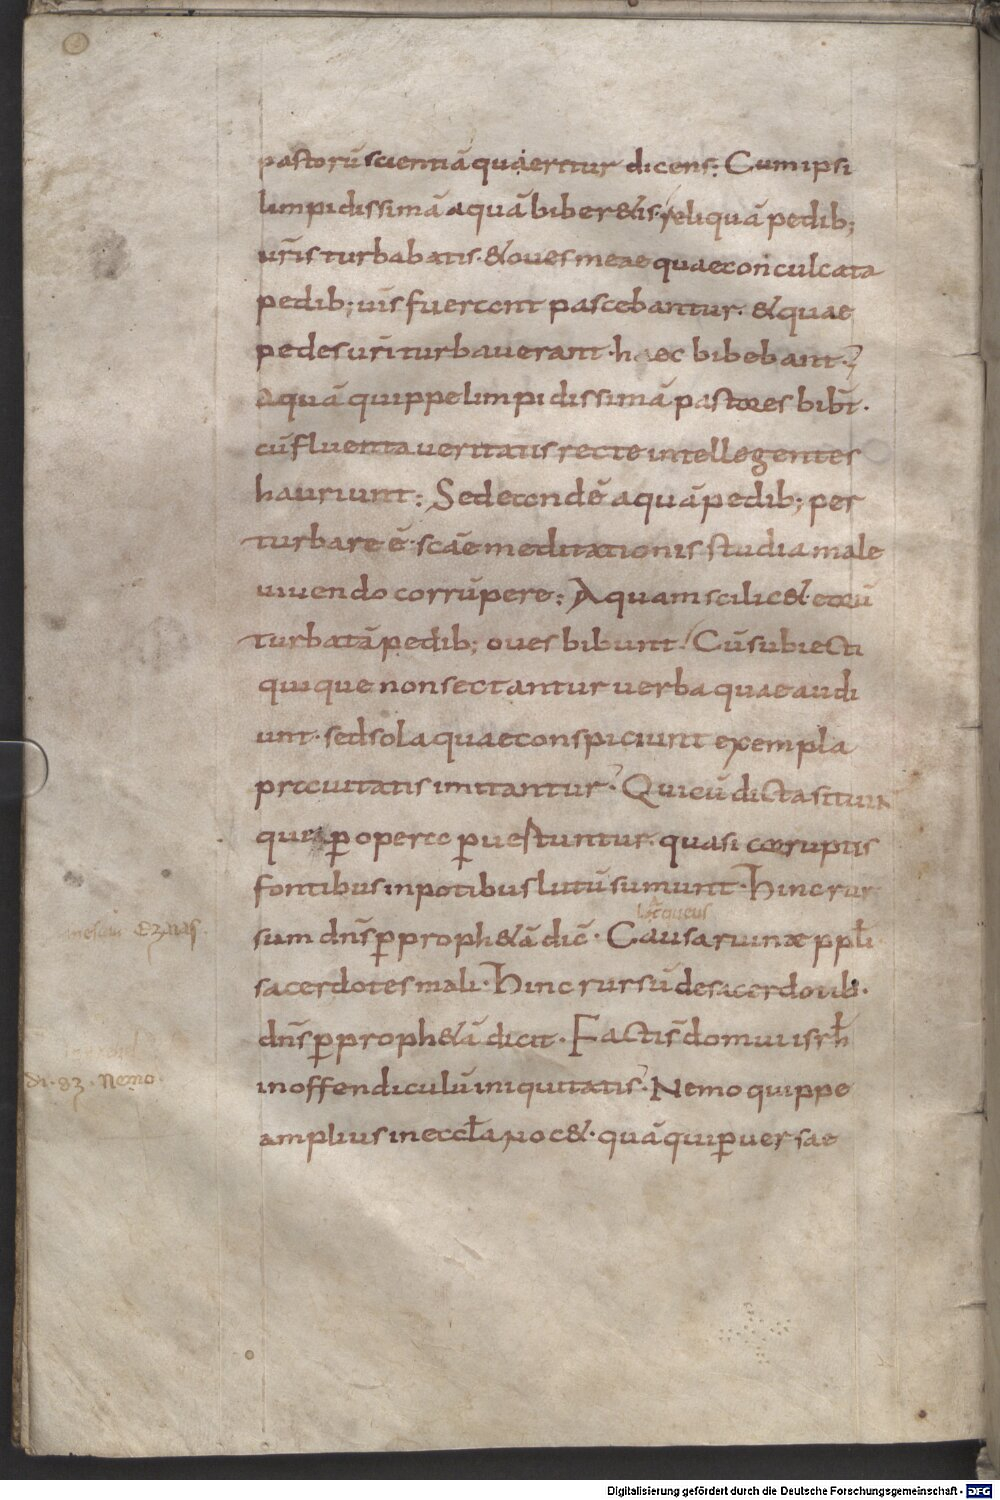 pastorū scientiā quaeritur dicens: Cum ipsi
limpidissimā aquā biber&is reliquā pedib;
urīs turbabatis· &oues meae quae conculcata
pedib; uīs fuerant pascebantur· & quae
pedes urī turbauerant· haec bibebant·
Aquā quippe limpidissimā pastores bibt̄·
cū fluenta ueritatis recte intellegentes
hauriunt: Sed eandē aquā pedib; per
turbare ē· scāe meditationis studia male
uiuendo corrūpere: Aquam scilic& eorū
turbatā pedib; oues bibunt· Cū subiecti
quique non sectantur uerba quae audi
unt· sed sola quae conspiciunt exempla
prauitatis imitantur· Qui cū dicta sitiun
quia ꝑ opera ꝑuertuntur· quasi corruptis
fontibus in potibus lutū sumunt· Hinc rur
laqueus
sum dn̄s ꝑ proph&ā dic̄· Causa ruinae ppl̄i
sacerdotes mali· Hinc rursū de sacerdotib·
dn̄s ꝑ proph&ā dicit· Facti s̄ domui isrl̄
in offendiculū iniquitatis· Nemo quippe
amplius in eccl̄a noc&· quā qui ꝑuersae
di · 83 · Nemo·
Digitalisierung gefördert durch die Deutsche Forschungsgemeinschaft - DFG